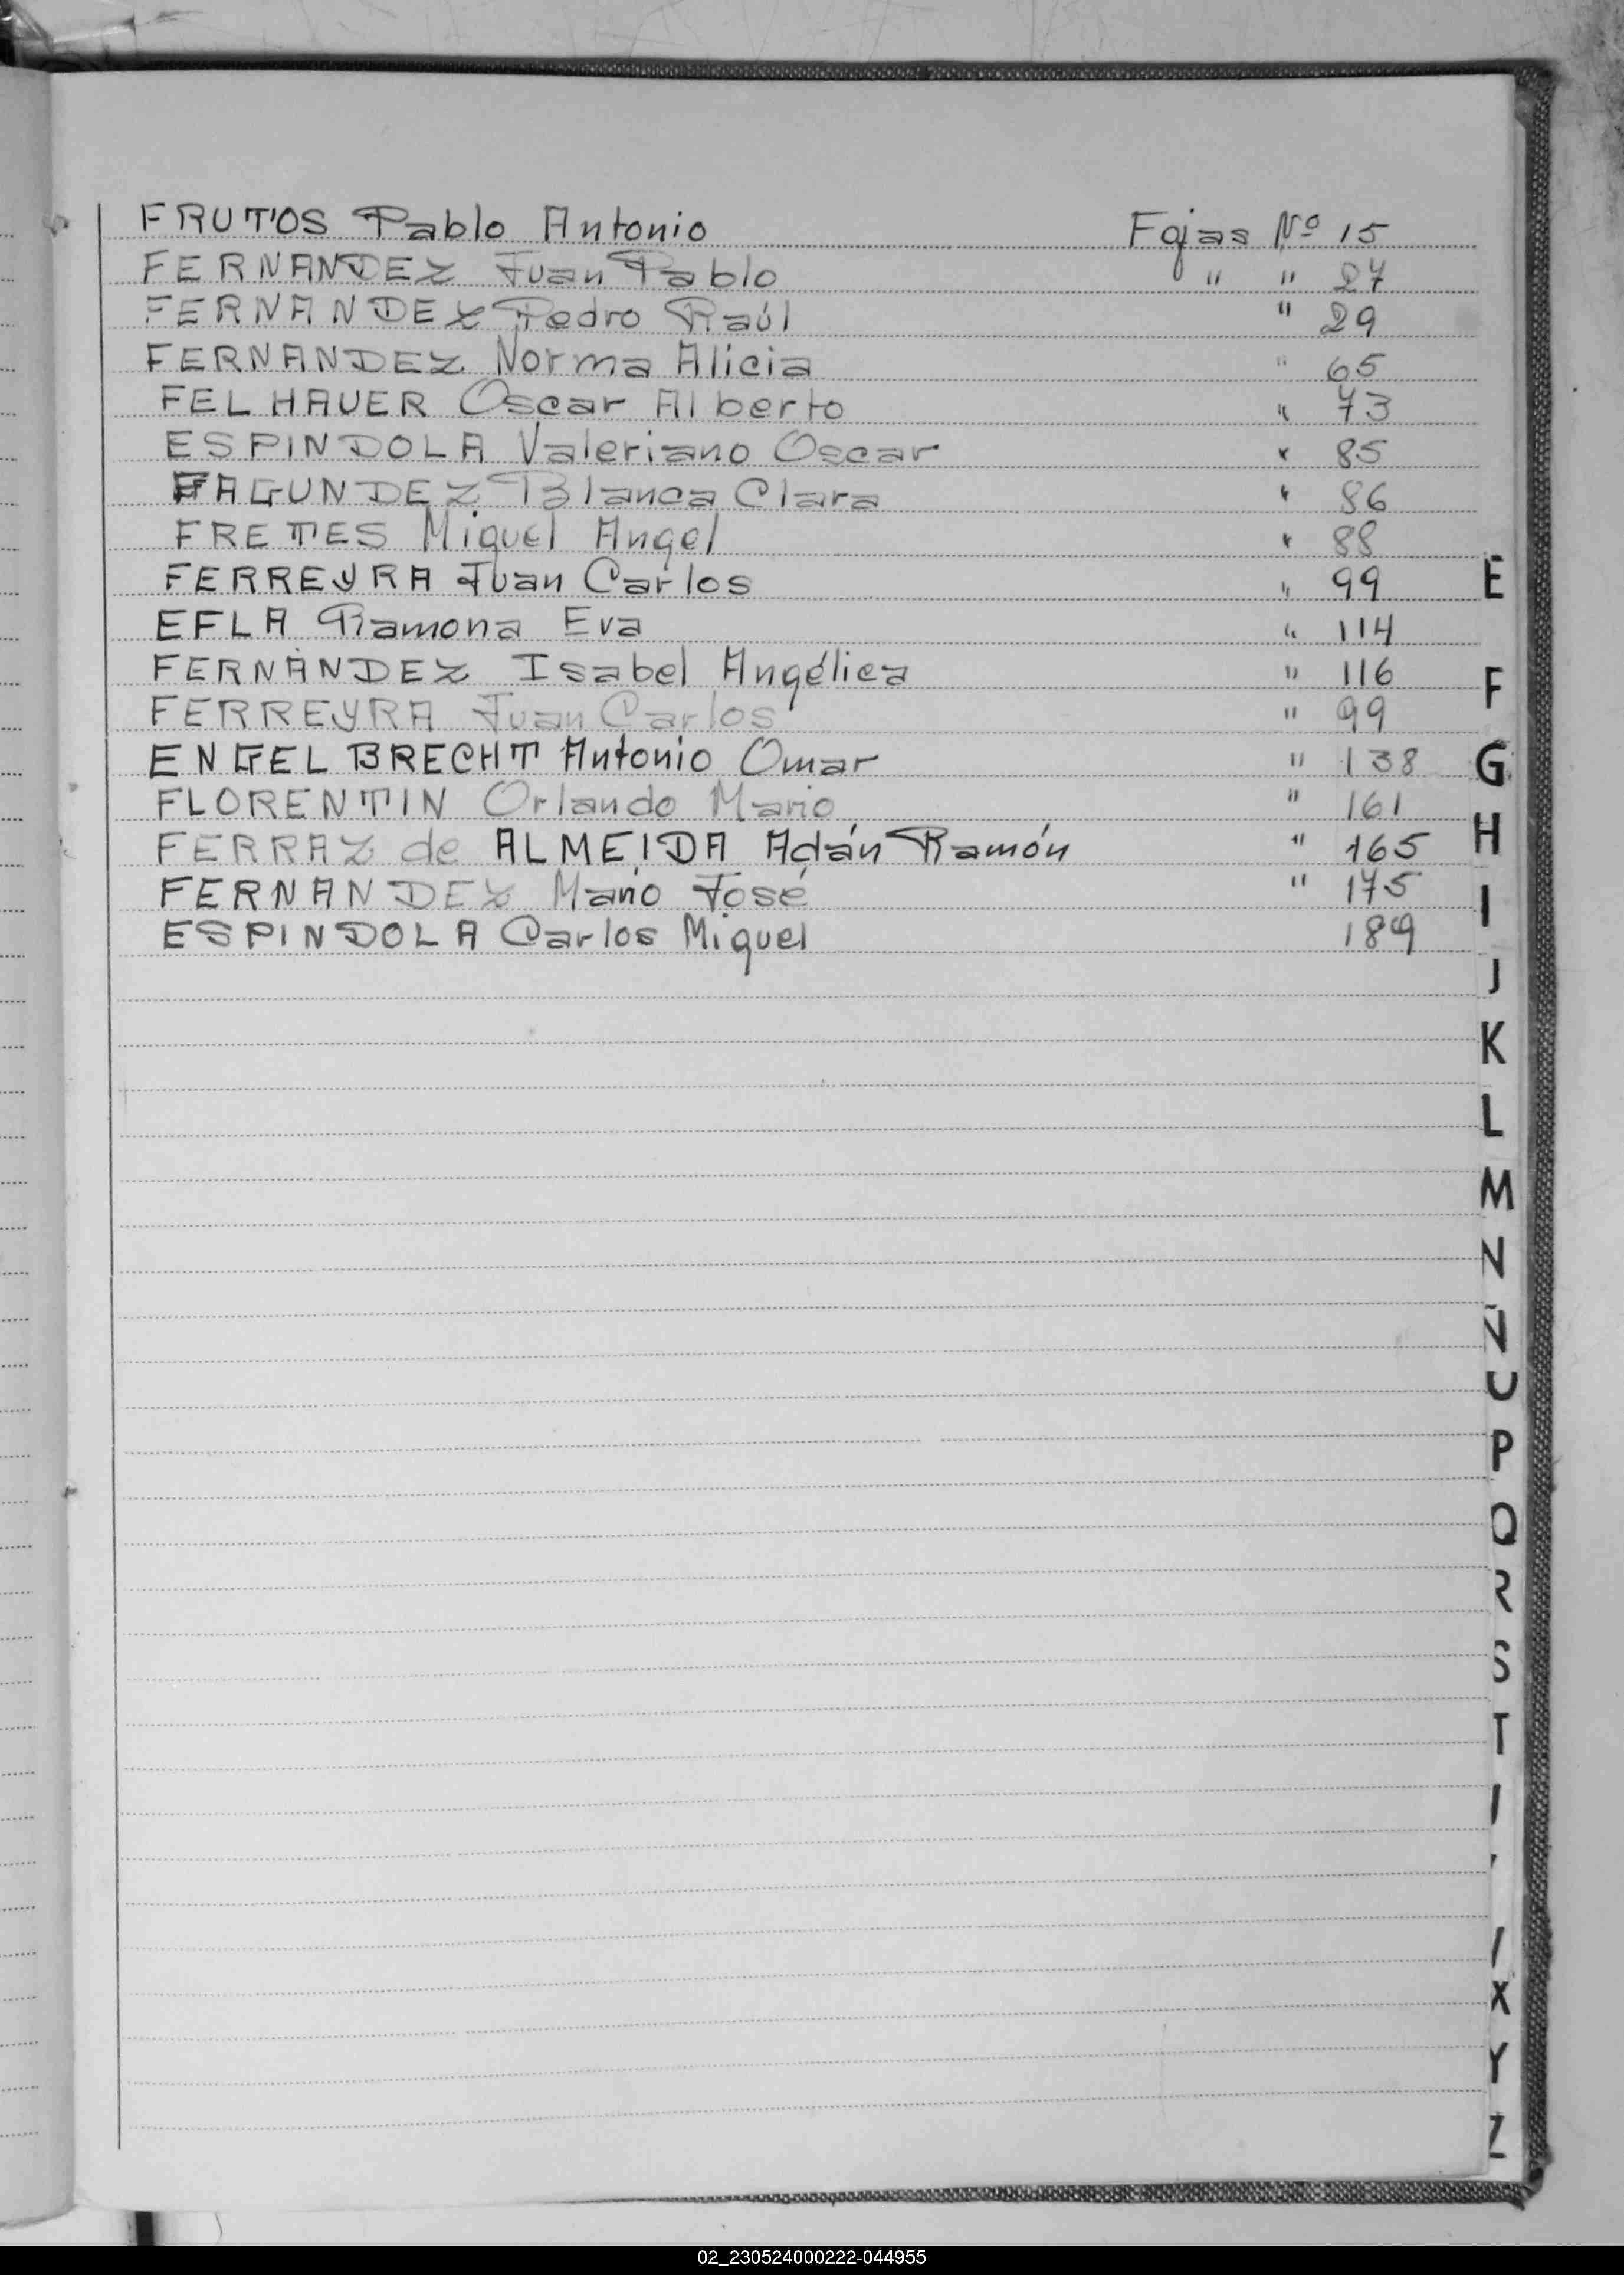 FRUTOS Pablo Antonio Fojas Nº 15
FERNANDEZ Juan Pablo " " 27
FERNANDEZ Pedro Raúl " 29
FERNANDEZ Norma Alicia " 65
FELHAUER Oscar Alberto " 73
ESPINDOLA Valeriano Oscar " 85
FAGUNDEZ Blanca Clara " 86
FRETES Miguel Angel " 88
FERREYRA Juan Carlos " 99
EFLA Ramona Eva " 114
FERNÁNDEZ Isabel Angélica " 116
FERREYRA Juan Carlos " 99
ENGELBRECHT Antonio Omar " 138
FLORENTIN Orlando Mario " 161
FERRAZ de ALMEIDA Adán Ramón " 165
FERNANDEZ Mario José " 175
ESPINDOLA Carlos Miguel 189
E
F
G
H
I
J
K
L
M
N
Ñ
P
Q
R
S
T
X
Y
Z
02_230524000222-044955